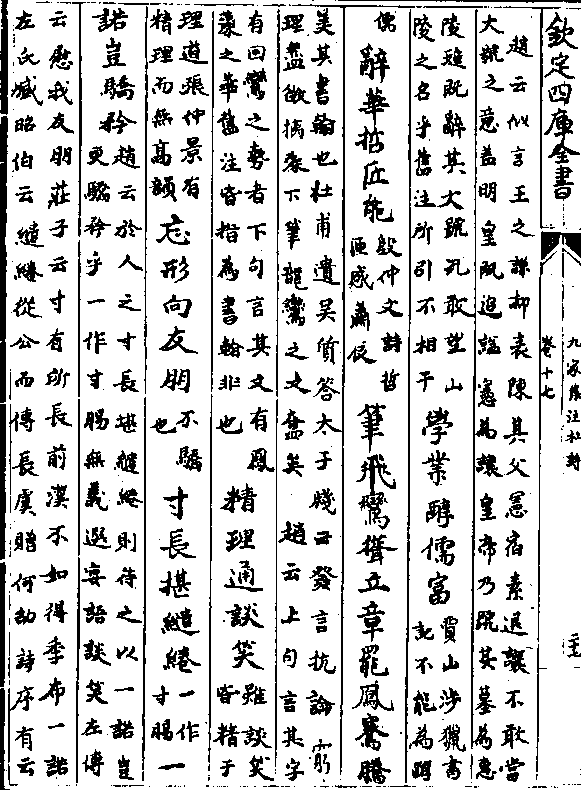 欽定四庫全書
九家集注杜詩
卷十七
趙云似言王之謙抑表陳其父憲宿素退讓不敢當
大號之意蓋明皇既追諡憲為讓皇帝乃號其墓為惠
陵雖既辭其大號孔敢望山
陵之名乎舊注所引不相干
學業醇儒富
賈山涉獵書
記不能為醇
儒
辭華哲匠能
殷仲文詩哲
匠感蕭辰
筆飛鸞聳立章罷鳳騫騰
美其書翰也杜甫遺吳質答太子牋云發言抗論窮
理盡微摛藻下筆龍鸞之文奮矣
趙云上句言其字
有回鸞之勢者下句言其文有鳳
藻之華舊注皆指為書翰非也
精理通談笑
雖談笑
皆精于
理道張仲景有
精理而無高韻
忘形向友朋
不驕
也
寸長堪繾綣
一作
寸賜
一
諾豈驕矜
趙云於人之寸長越繾綣則待之以一諾豈
更驕矜乎一作寸賜無義選宴語談笑左傳
云慰我友朋莊子云寸有所長前漢不如得季布一諾
左氏臧昭伯云繾綣從公而傅長虞贈何劭詩序有云